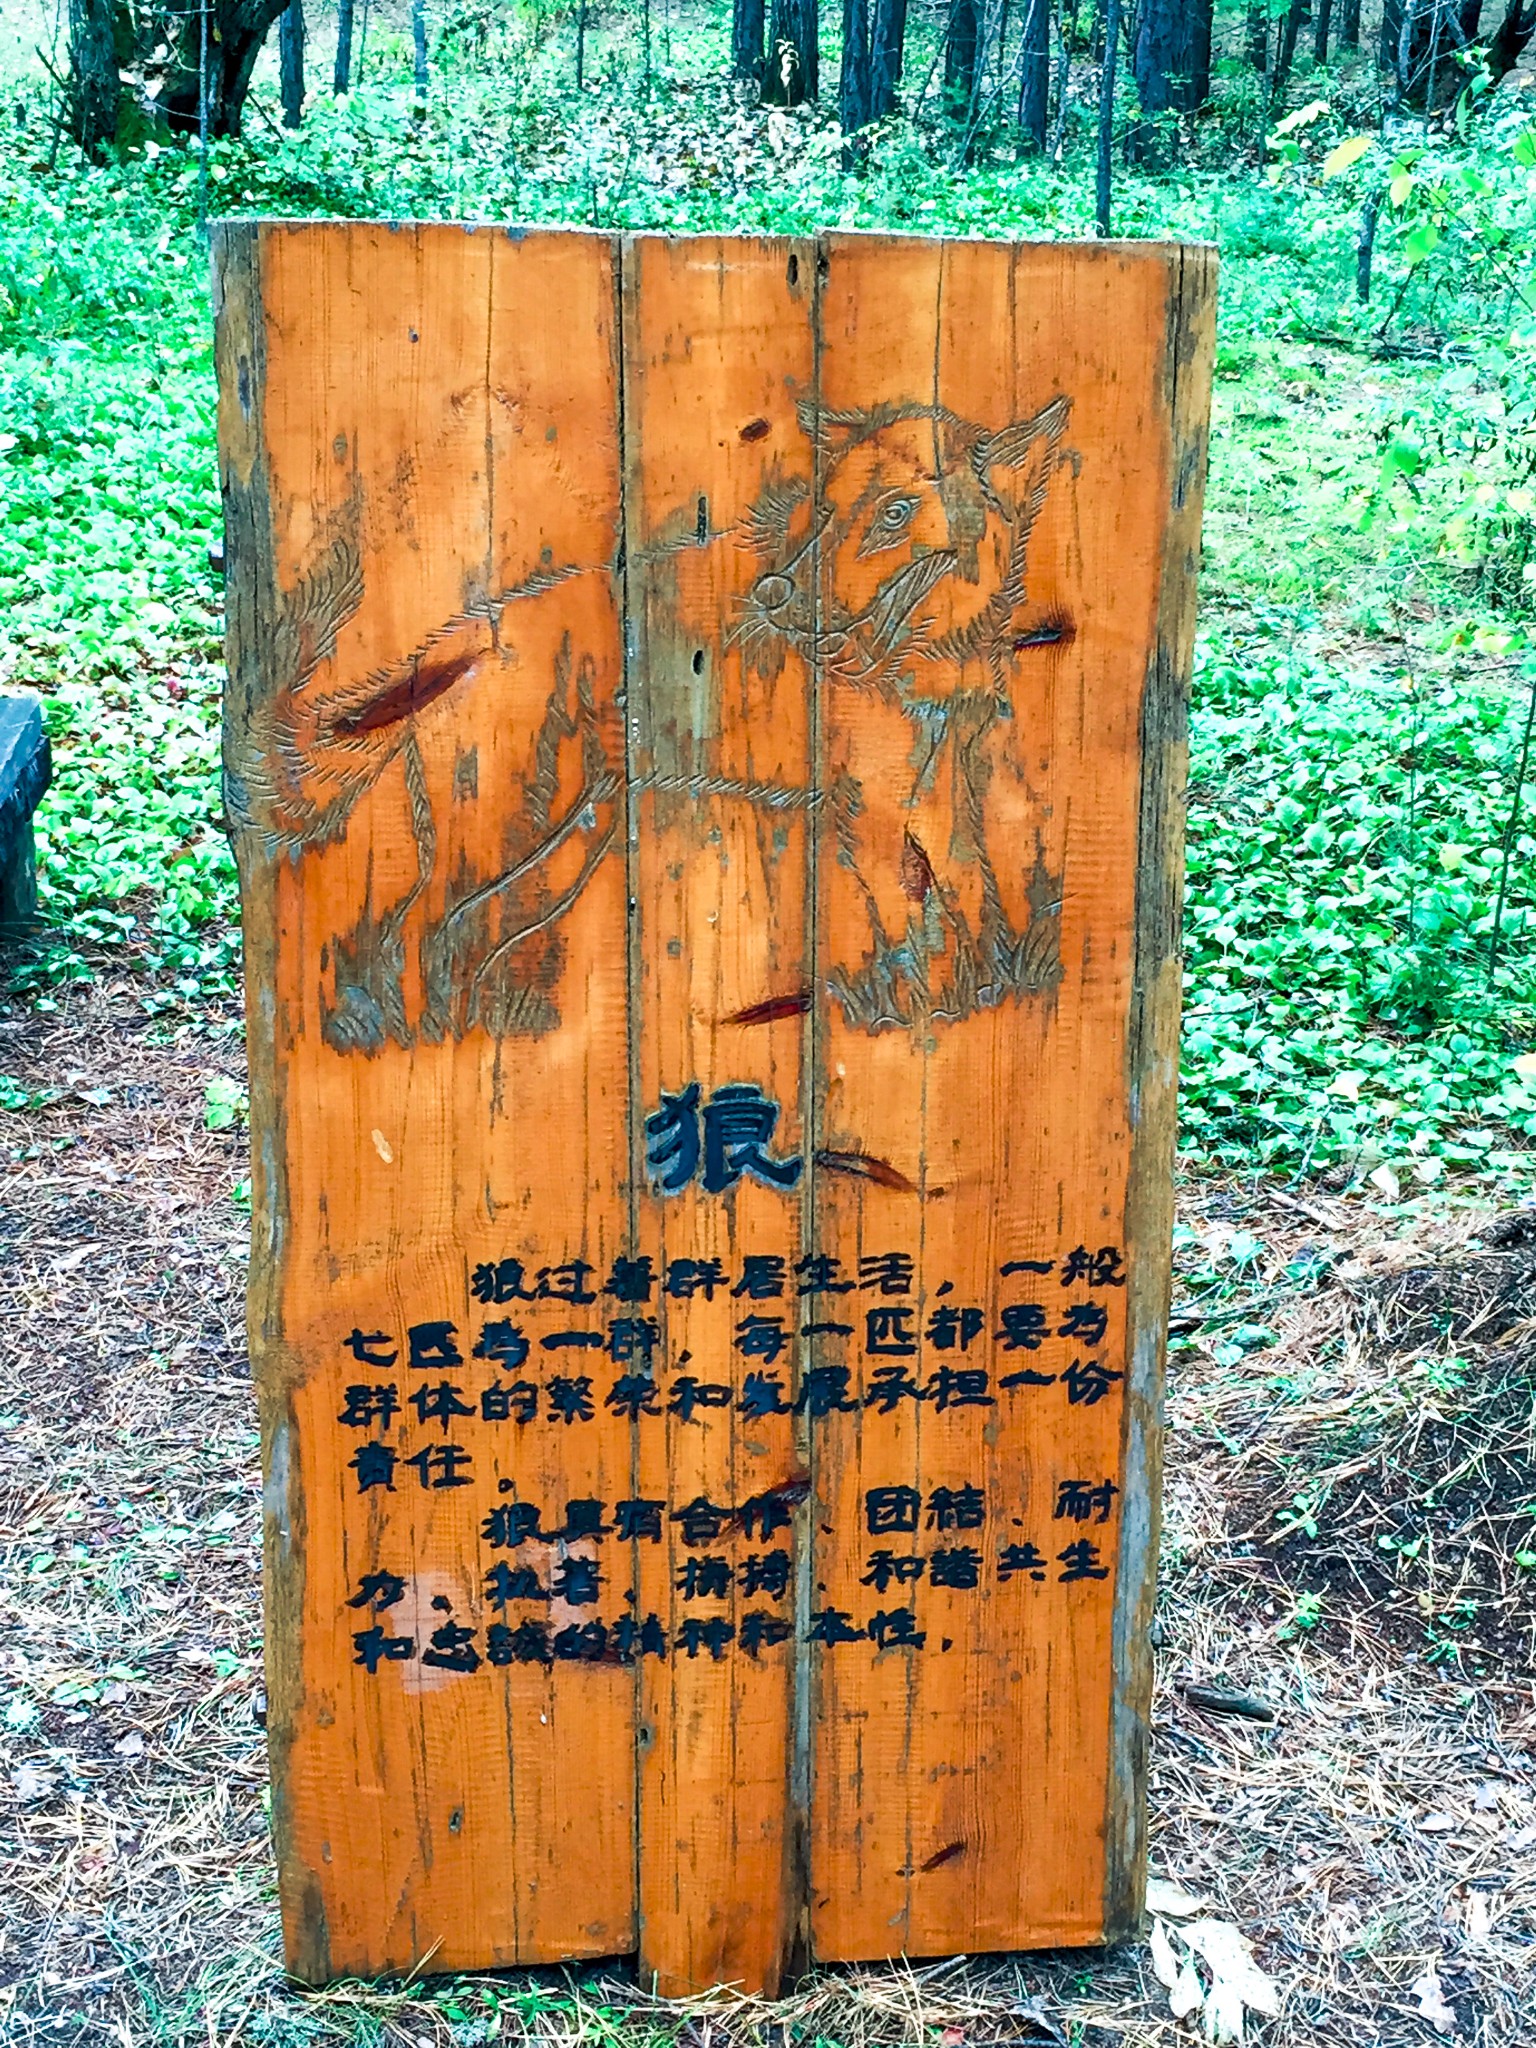 狼
狼过着群居生活，一般
七匹为一群，每一匹都要为
群体的繁荣和发展承担一份
责任。
狼具有合作、团結、耐
力、执著、擕持、和諧共生
和忠誠的精神和本性。